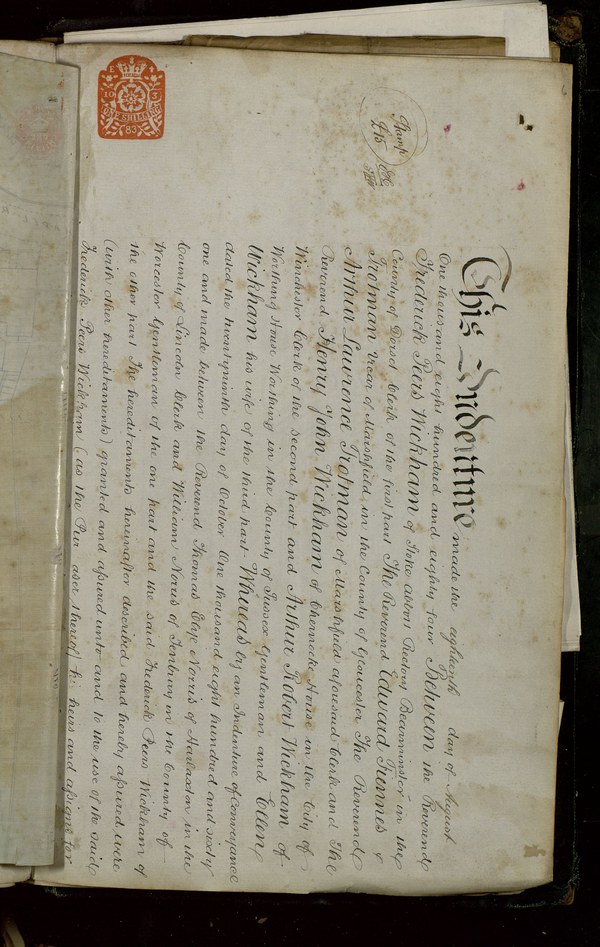 E R
10 3
ONE SHILLING
83
Stamp
£15
This Indenture made the eighteenth day of August
One thousand eight hundred and eighty four Between the Reverend
Frederick Peers Wickham of Stoke Abbott Rectory Beaminster in the
County of Dorset Clerk of the first part The Reverend Edward Fiennes
Trotman Vicar of Marshfield in the County of Gloucester The Reverend
Arthur Laurence Trotman of Marshfield aforesaid Clerk and The
Reverend Henry John Wickham of Chernocke House in the City of
Winchester Clerk of the second part and Arthur Robert Wickham of
Worthing House Worthing in the County of Sussex Gentleman and Ellen
Wickham his wife of the third part Whereas by an Indenture of Conveyance
dated the twentyninth day of October One thousand eight hundred and sixty
one and made between the Reverend Thomas Norris of Harlaxton in the
County of Lincoln Clerk and William Norris of Tenbury in the County of
Worcester Gentleman of the one part and the said Frederick Peers Wickham of
the other part The hereditaments hereinafter described and hereby assured were
(with other hereditaments) granted and assured unto and to the use of the said
Frederick Peers Wickham (as the Pur aser thereof) his heirs and assigns for